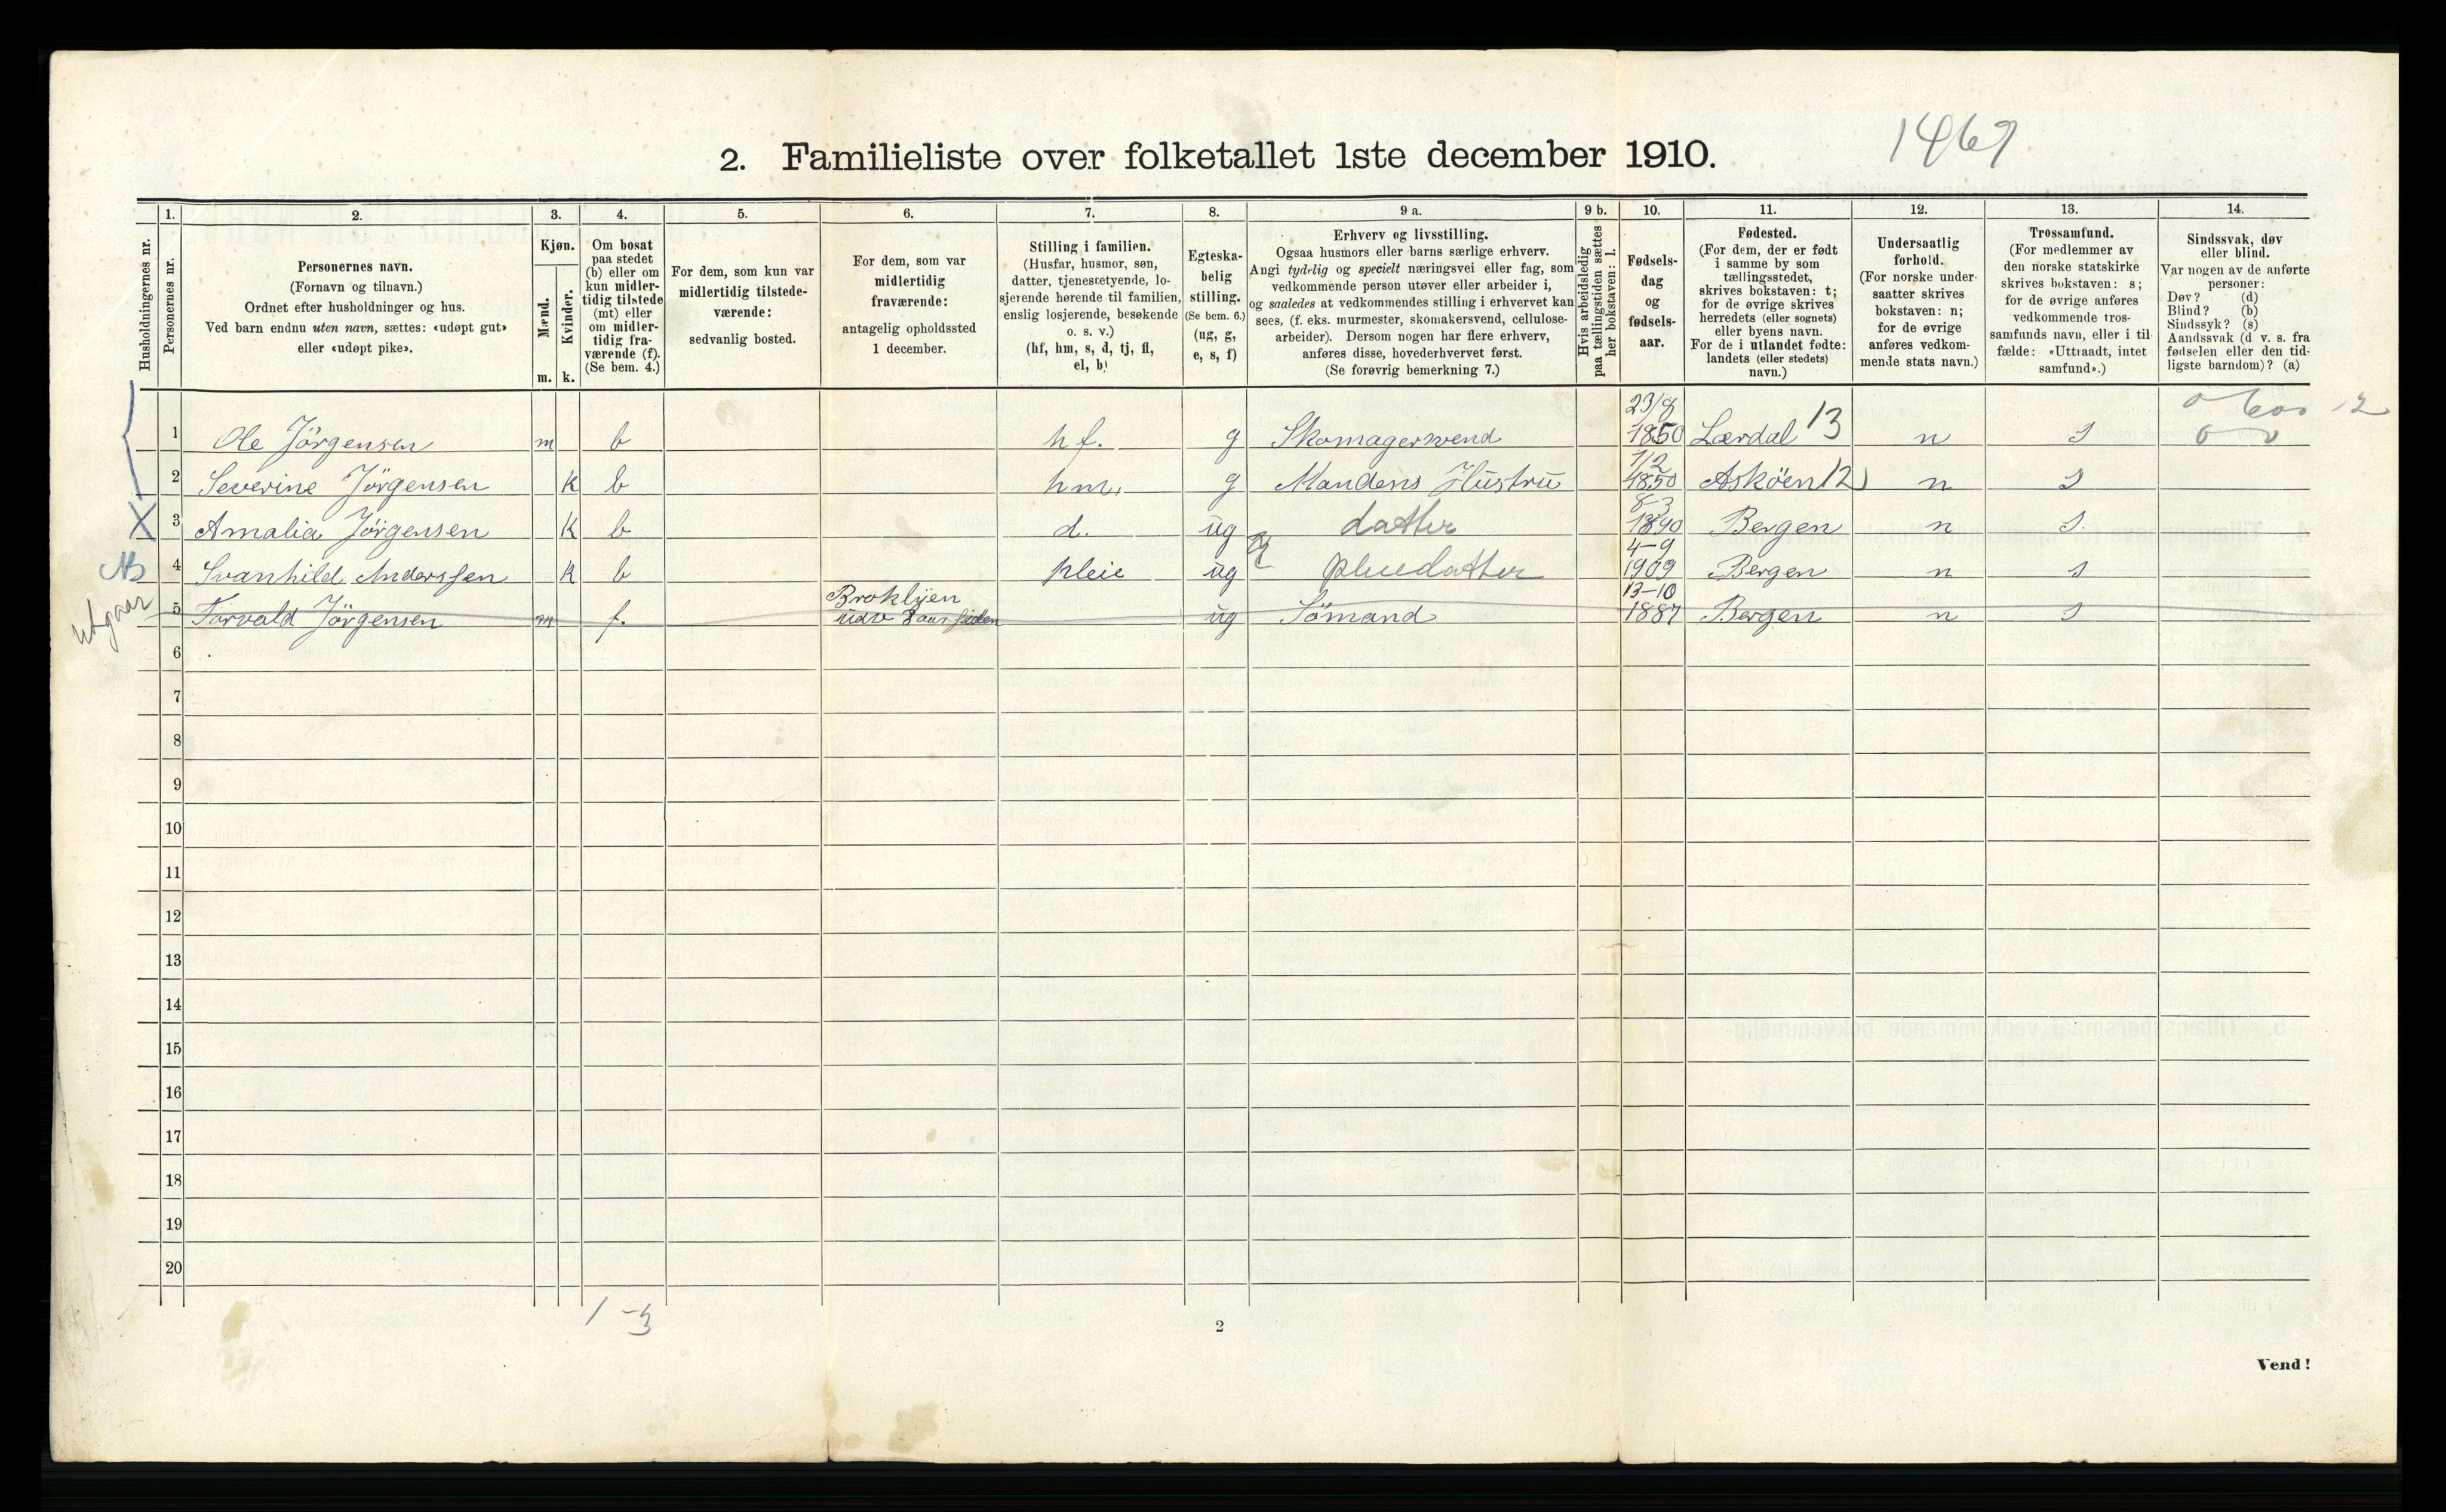 2. Familieliste over folketallet 1ste december 1910.
1469
1. 2. 3. 4. 5. 6. 7. 8. 9 a. 9 b. 10. 11. 12. 13. 14.
Husholdningernes nr.
Personernes nr.
Personernes navn.
(Fornavn og tilnavn.)
Ordnet efter husholdninger og hus.
Ved barn endnu uten navn, sættes: «udøpt gut»
eller «udøpt pike».
Kjøn.
Mænd.
Kvinder.
m. k.
Om bosat
paa stedet
(b) eller om
kun midler-
tidig tilstede
(mt) eller
om midler-
tidig fra-
værende (f).
(Se bem. 4.)
For dem, som kun var
midlertidig tilstede-
værende:
sedvanlig bosted.
For dem, som var
midlertidig
fraværende:
antagelig opholdssted
1 december.
Stilling i familien.
(Husfar, husmor, søn,
datter, tjenestetyende, lo-
sjerende hørende til familien,
enslig losjerende, besøkende
o. s. v.)
(hf, hm, s, d, tj, fl,
el, b)
Egteska-
belig
stilling.
(Se bem. 6.)
(ug, g,
e, s, f)
Erhverv og livsstilling.
Ogsaa husmors eller barns særlige erhverv.
Angi tydelig og specielt næringsvei eller fag, som
vedkommende person utøver eller arbeider i,
og saaledes at vedkommendes stilling i erhvervet kan
sees, (f. eks. murmester, skomakersvend, cellulose-
arbeider). Dersom nogen har flere erhverv,
anføres disse, hovederhvervet først.
(Se forøvrig bemerkning 7.)
Hvis arbeidsledig
paa tællingstiden sættes
her bokstaven: l.
Fødsels-
dag
og
fødsels-
aar.
Fødested.
(For dem, der er født
i samme by som
tællingsstedet,
skrives bokstaven: t;
for de øvrige skrives
herredets (eller sognets)
eller byens navn.
For de i utlandet fødte:
landets (eller stedets)
navn.)
Undersaatlig
forhold.
(For norske under-
saatter skrives
bokstaven: n;
for de øvrige
anføres vedkom-
mende stats navn.)
Trossamfund.
(For medlemmer av
den norske statskirke
skrives bokstaven: s;
for de øvrige anføres
vedkommende tros-
samfunds navn, eller i til-
fælde: «Uttraadt, intet
samfund».)
Sindssvak, døv
eller blind.
Var nogen av de anførte
personer:
Døv? (d)
Blind? (b)
Sindssyk? (s)
Aandssvak (d v. s. fra
fødselen eller den tid-
ligste barndom)? (a)
23/8
1 Ole Jörgensen m b hf. g Skomagersvend 1850 Lærdal 13 n s
1/2
2 Severine Jörgensen k b hm. g Mandens Hustru 1850 Asköen 12 n s
8-3
X 3 Amalia Jörgensen k b d. ug datter 1890 Bergen n s.
4-9
NB 4 Svanhild Anderssen k b pleie ug pleiedatter 1909 Bergen n s
Broklÿen 13-10
utgaar 5 Torvald Jörgensen m f. udv 3 aar siden ug Sömand 1887 Bergen n s
6
7
8
9
10
11
12
13
14
15
16
17
18
19
20
1 - 3
2
Vend!